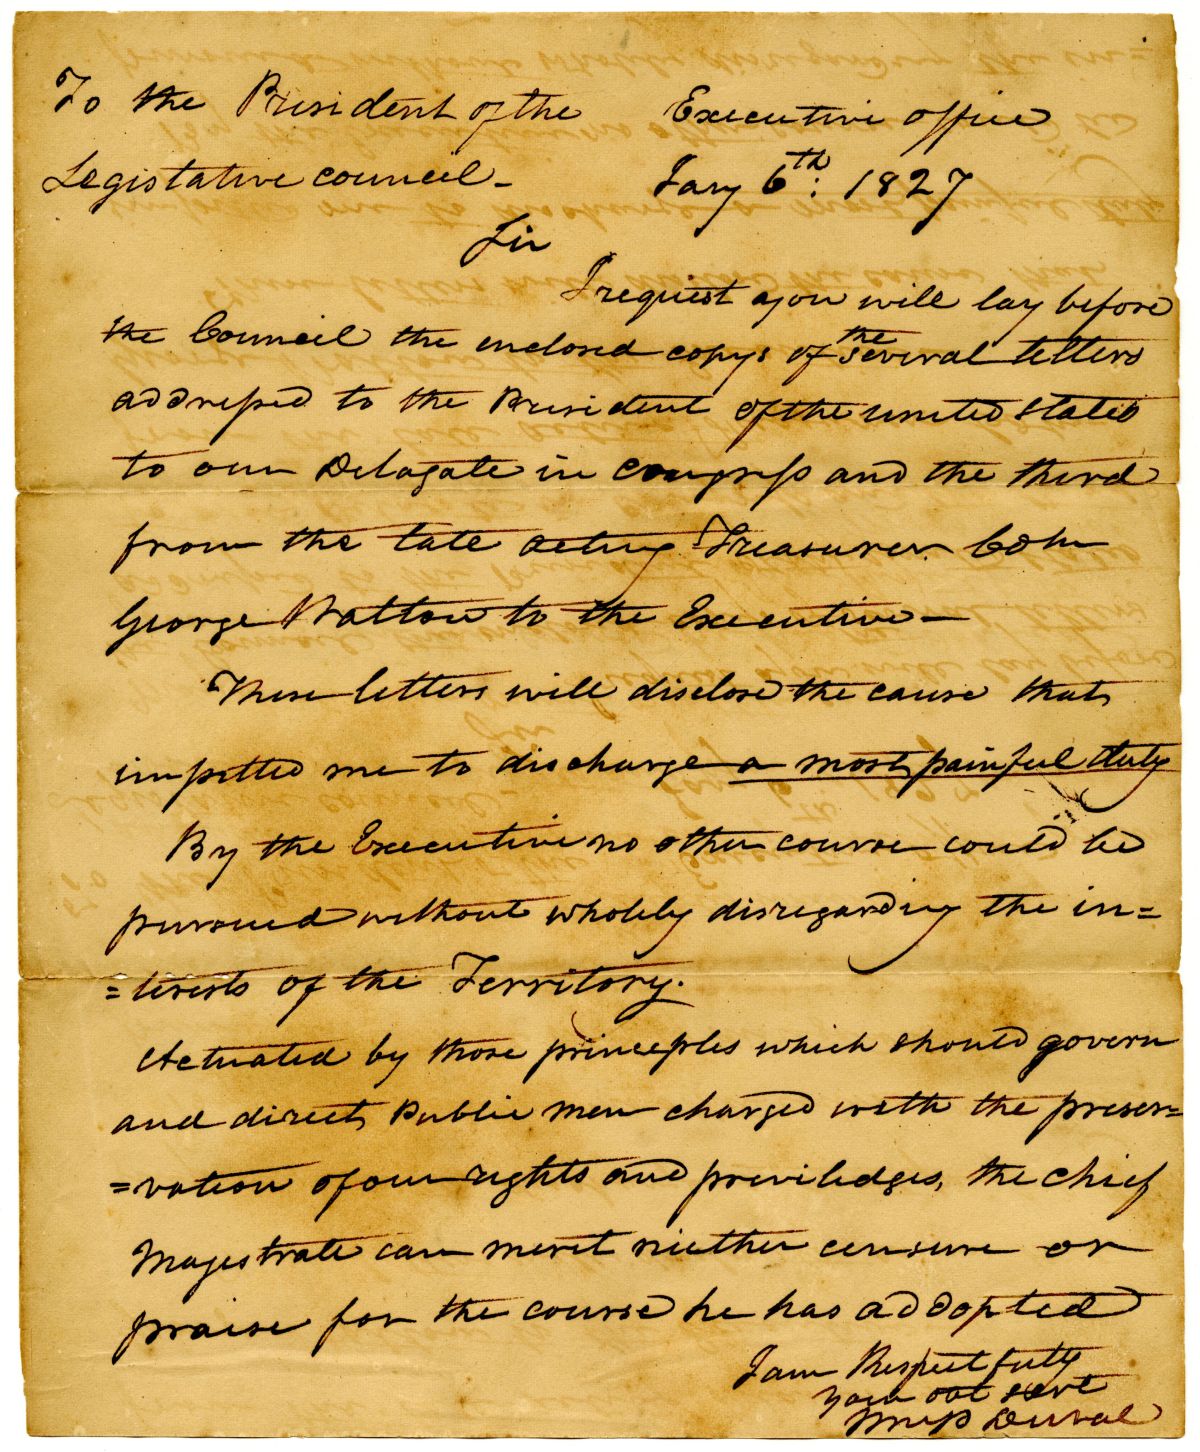 To the President of the
Legistative council-
Executive office
Jany 6th: 1827
Sir
I request you will lay before
the Council the enclosed copys of the several letters
addressed to the President of the united states
to our Delagate in congress and the third
from the late acting Treasurer Coln
George Walton to the Executive-
These letters will disclose the cause that
impelled me to discharge a most painful duty
By the Executive no other course could be
pursued without wholely disregarding the in=
=terests of the Territory.
Actuated by those principles which should govern
and direct Public men charged with the preser=
=vation of our rights and priviledges, the chief
Magistrate can merit niether censure or
praise for the course he has addopted
I am Respectfully
your obt servt
Wm P Duval